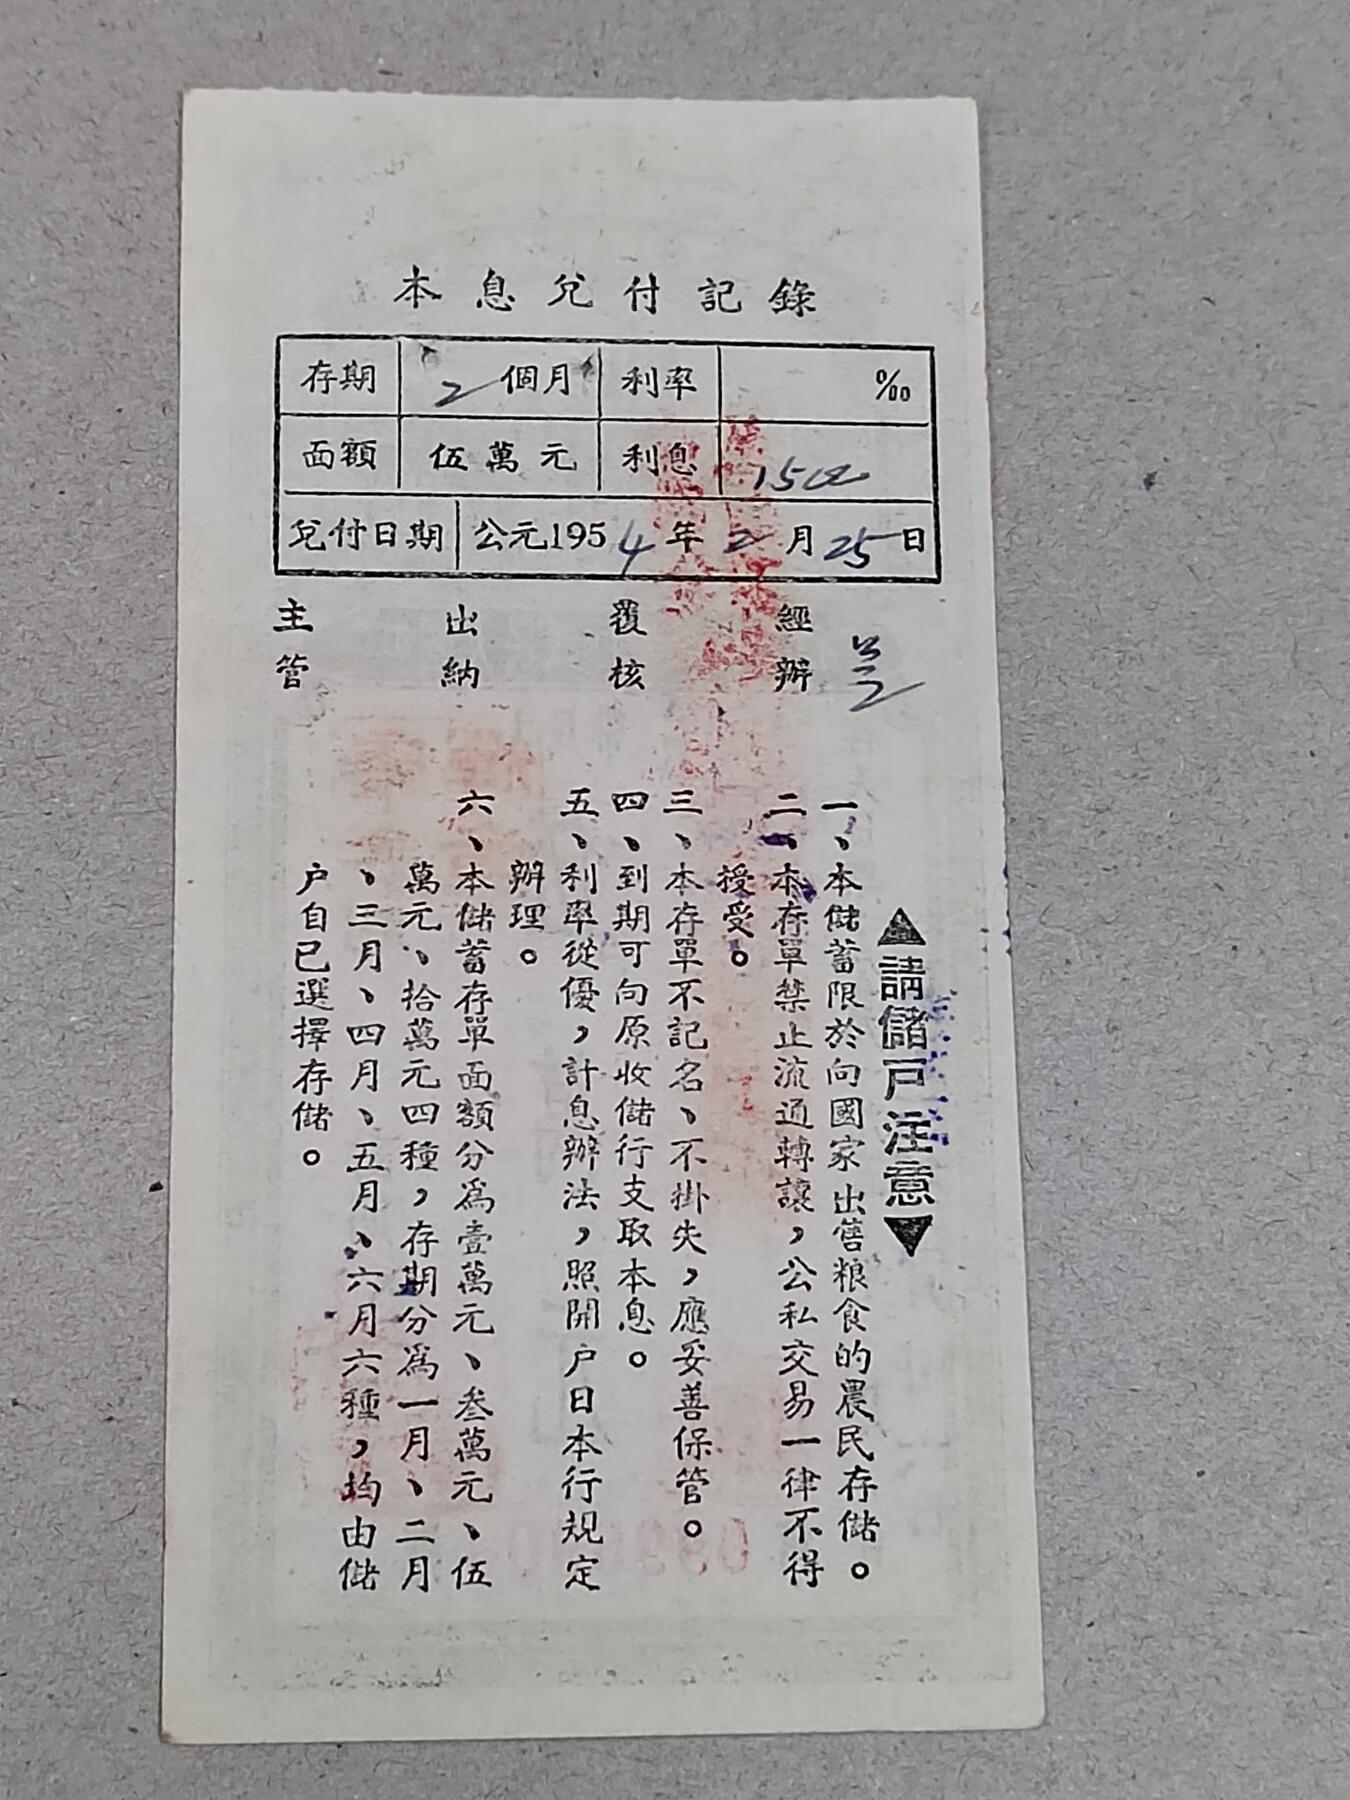 本息兌付記錄
存期 2個月 利率 ‰
面額 伍萬元 利息
兌付日期 公元1954年2月25日
主管 出納 覆核 經辦
▲請儲戶注意▼
一、本儲蓄限於向國家出售粮食的農民存儲。
二、本存單禁止流通轉讓，公私交易一律不得
授受。
三、本存單不記名、不掛失，應妥善保管。
四、到期可向原收儲行支取本息。
五、利率從優，計息辦法，照開户日本行規定
辦理。
六、本儲蓄存單面額分爲壹萬元、叁萬元、伍
萬元、拾萬元四種，存期分爲一月、二月
、三月、四月、五月、六月六種，均由儲
户自已選擇存儲。